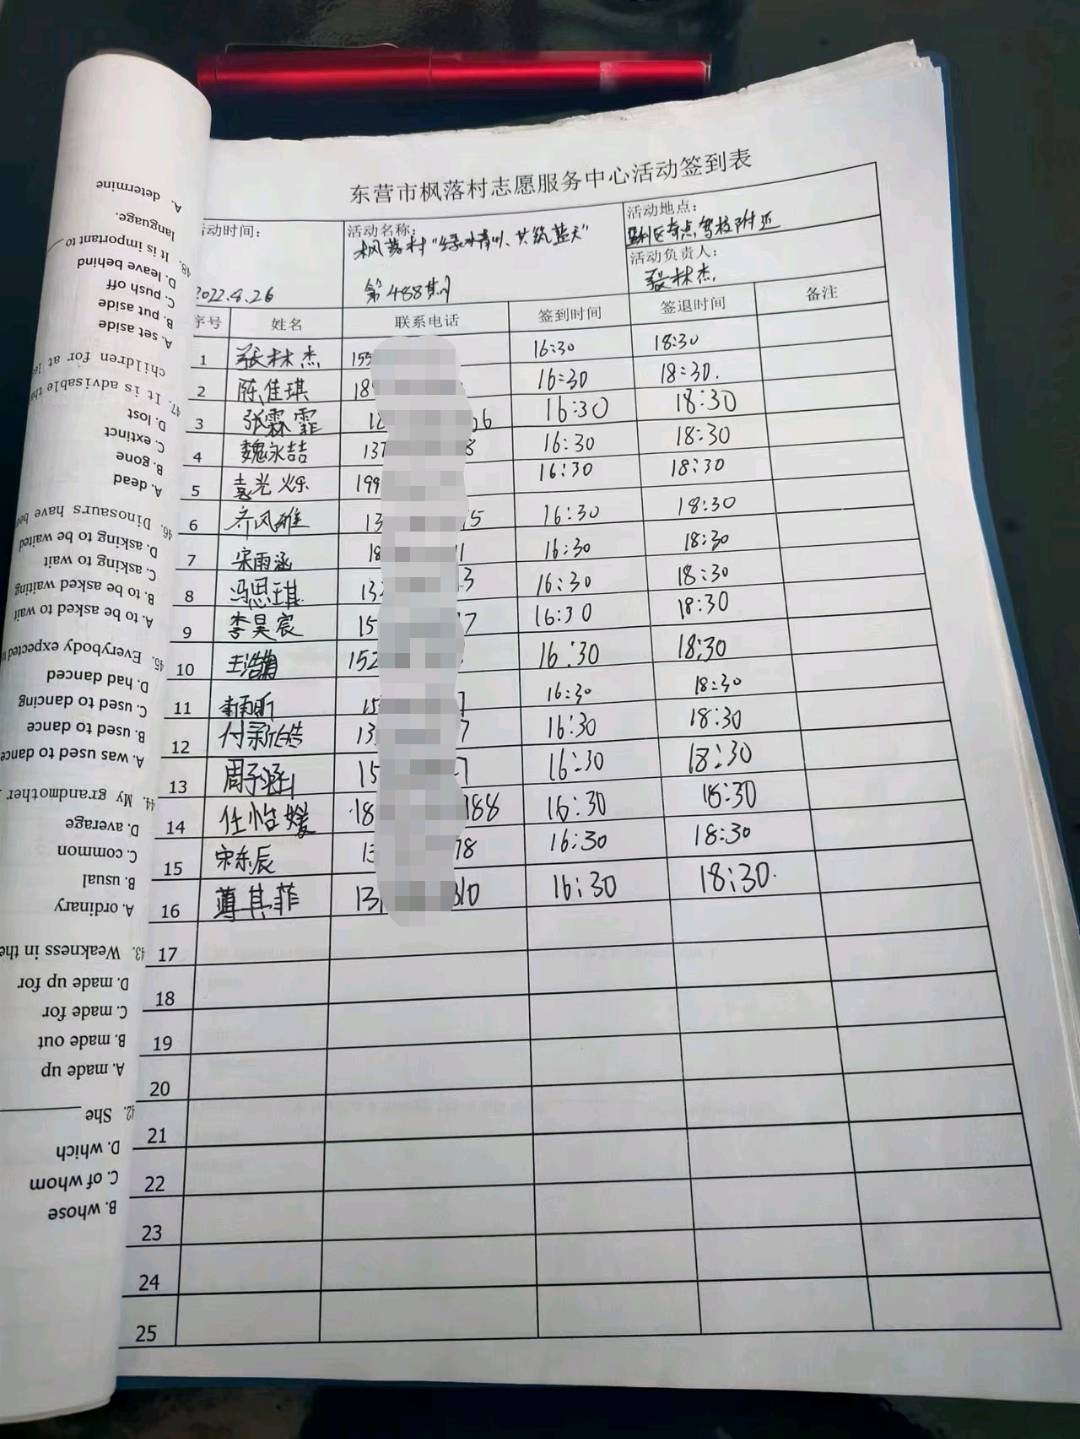 东营市枫落村志愿服务中心活动签到表
活动时间：
2022.4.26
活动名称：
枫落村"绿水青山、共筑蓝天"
第488期
活动地点：
垦利区奇点驾校附近
活动负责人：
张林杰
序号 姓名 联系电话 签到时间 签退时间 备注
1 张林杰 155 16:30 18:30
2 陈佳琪 18 16:30 18:30.
3 张霖霏 18 26 16:30 18:30
4 魏永喆 137 8 16:30 18:30
5 袁光烁 199 16:30 18:30
6 乔风雄 13 15 16:30 18:30
7 宋雨涵 18 11 16:30 18:30
8 冯思琪 13 3 16:30 18:30
9 李昊宸 15 7 16:30 18:30
10 王浩 152 16:30 18:30
11 15 16:30 18:30
12 付新皓 13 7 16:30 18:30
13 周子涵 15 7 16:30 18:30
14 任怡媛 18 188 16:30 18:30
15 宋东辰 13 78 16:30 18:30
16 薄其菲 13 310 16:30 18:30.
17
18
19
20
21
22
23
24
25
B. whose
C. of whom
D. which
42. She
A. made up
B. made out
C. made for
D. made up for
43. Weakness in the
A. ordinary
B. usual
C. common
D. average
44. My grandmother
A. was used to dance
B. used to dance
C. used to dancing
D. had danced
45. Everybody expected
A. to be asked to wait
B. to be asked waiting
C. asking to wait
D. asking to be waited
46. Dinosaurs have
A. dead
B. gone
C. extinct
D. lost
47. It is advisable
children for at
A. set aside
B. put aside
C. push off
D. leave behind
48. It is important to
language.
A. determine